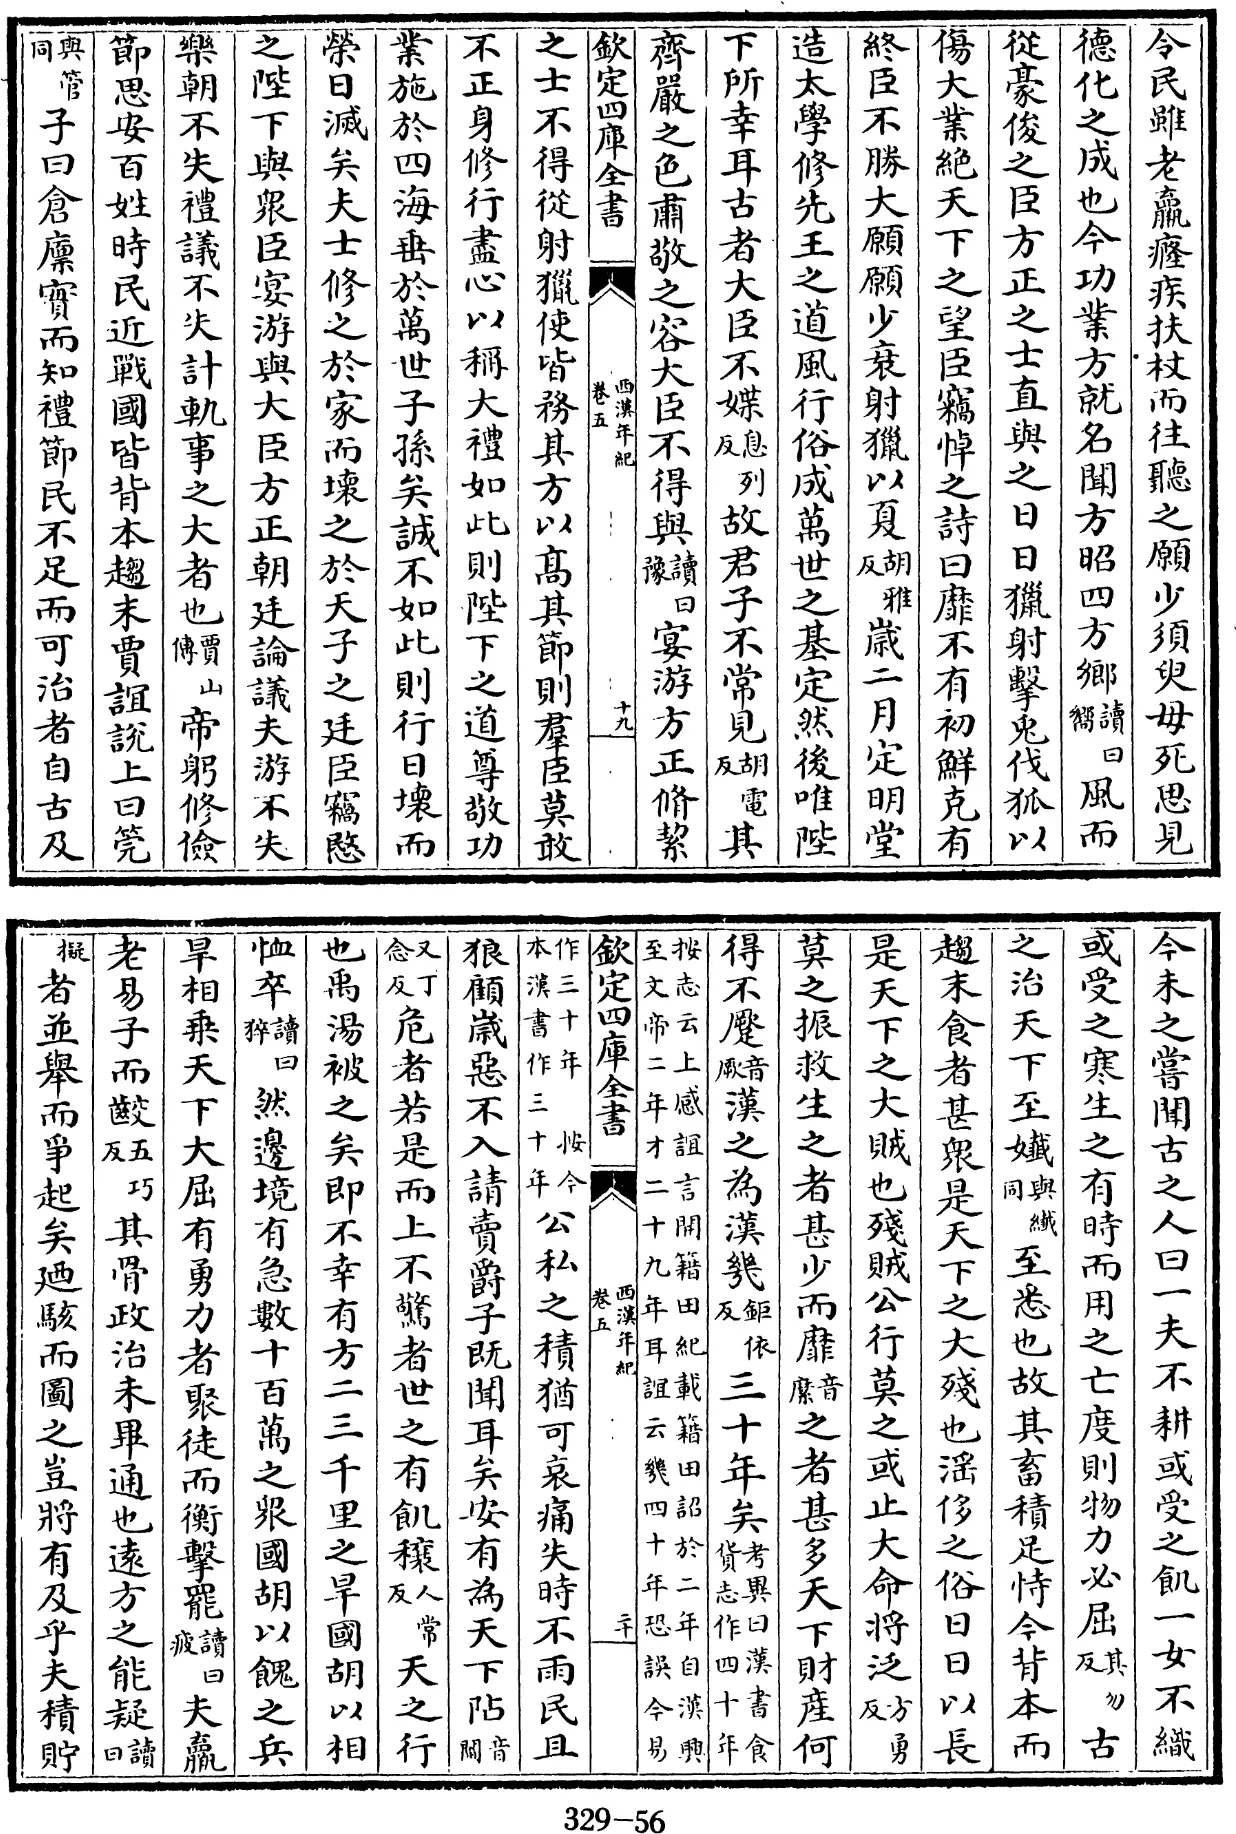 令民雖老羸癃疾扶杖而往聽之願少須臾毋死思見
德化之成也今功業方就名聞方昭四方鄉讀曰嚮風而
從豪俊之臣方正之士直與之日日獵射擊兎伐狐以
傷大業絶天下之望臣竊悼之詩曰靡不有初鮮克有
終臣不勝大願願少衰射獵以夏胡雅反歳二月定明堂
造太學修先王之道風行俗成萬世之基定然後唯陛
下所幸耳古者大臣不媟息列反故君子不常見胡電反其
齊嚴之色肅敬之容大臣不得與讀曰豫宴游方正脩絜
欽定四庫全書 西漢年紀卷五 十九
之士不得從射獵使皆務其方以髙其節則羣臣莫敢
不正身修行盡心以稱大禮如此則陛下之道尊敬功
業施於四海垂於萬世子孫矣誠不如此則行日壞而
榮日滅矣夫士修之於家而壞之於天子之廷臣竊愍
之陛下與衆臣宴游與大臣方正朝廷論議夫游不失
樂朝不失禮議不失計軌事之大者也賈山傳帝躬修儉
節思安百姓時民近戰國皆背本趨末賈誼說上曰筦
與管同子曰倉廩實而知禮節民不足而可治者自古及
今未之嘗聞古之人曰一夫不耕或受之飢一女不織
或受之寒生之有時而用之亡度則物力必屈其勿反古
之治天下至孅與纎同至悉也故其畜積足恃今背本而
趨末食者甚衆是天下之大殘也滛侈之俗日日以長
是天下之大賊也殘賊公行莫之或止大命將泛方勇反
莫之振救生之者甚少而靡音縻之者甚多天下財產何
得不蹷音厥漢之為漢幾鉅依反三十年矣考異曰漢書食貨志作四十年
按志云上感誼言開籍田紀載籍田詔於二年自漢興至文帝二年才二十九年耳誼云幾四十年恐誤今易
欽定四庫全書 西漢年紀卷五 二十
作三十年 按今本漢書作三十年公私之積猶可哀痛失時不雨民且
狼顧歳惡不入請賣爵子既聞耳矣安有為天下阽音閻
又丁念反危者若是而上不驚者世之有飢穰人常反天之行
也禹湯被之矣即不幸有方二三千里之旱國胡以相
恤卒讀曰猝然邊境有急數十百萬之衆國胡以餽之兵
旱相乗天下大屈有勇力者聚徒而衡擊罷讀曰疲夫羸
老易子而齩五巧反其骨政治未畢通也遠方之能疑讀曰
擬者並舉而爭起矣廼駭而圖之豈將有及乎夫積貯
329-56